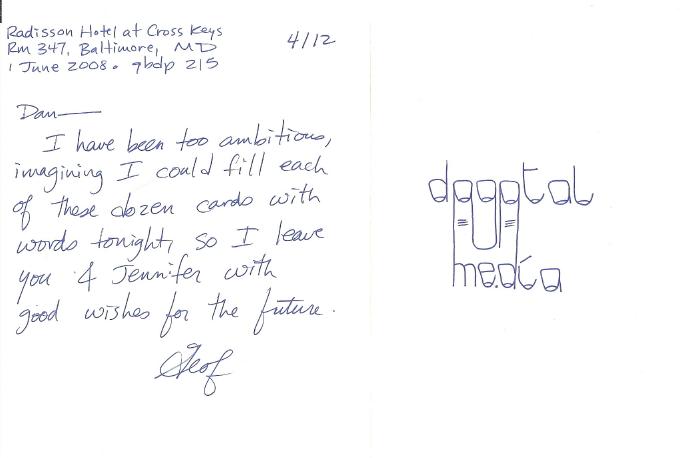 Radisson Hotel at Cross Keys
Rm 347, Baltimore, MD
1 June 2008. qbdp 215
4/12
Dan—
I have been too ambitious,
imagining I could fill each
of these dozen cards with
words tonight, so I leave
you & Jennifer with
good wishes for the future.
Geof
media